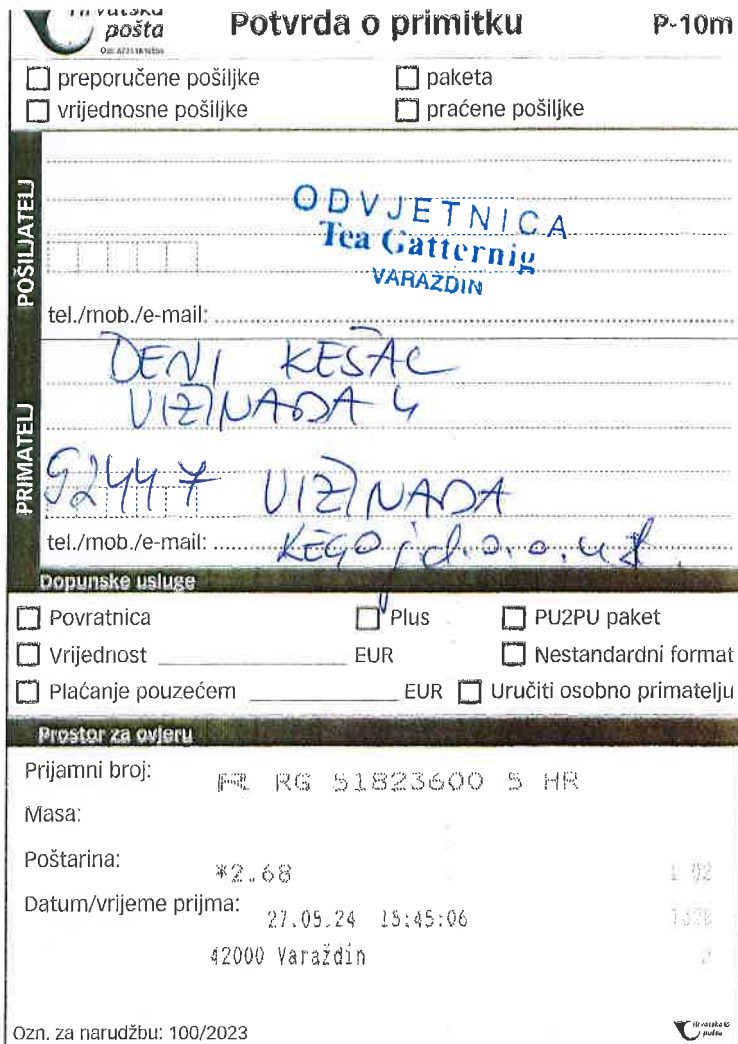 Hrvatska
pošta Potvrda o primitku P-10m
preporučene pošiljke paketa
vrijednosne pošiljke praćene pošiljke
POŠILJATELJ
ODVJETNICA
Tea Gatternig
VARAŽDIN
tel./mob./e-mail:
PRIMATELJ
DENI KESAC
VIZINADA 4
52447 VIZINADA
tel./mob./e-mail: KEGO j.d.o.o. u
Dopunske usluge
Povratnica Plus PU2PU paket
Vrijednost EUR Nestandardni format
Plaćanje pouzećem EUR Uručiti osobno primatelju
Prostor za ovjeru
Prijamni broj: RG 51823600 5 HR
Masa:
Poštarina: *2.68
Datum/vrijeme prijma: 27.05.24 15:45:06
42000 Varaždin
Ozn. za narudžbu: 100/2023
Hrvatska
pošta